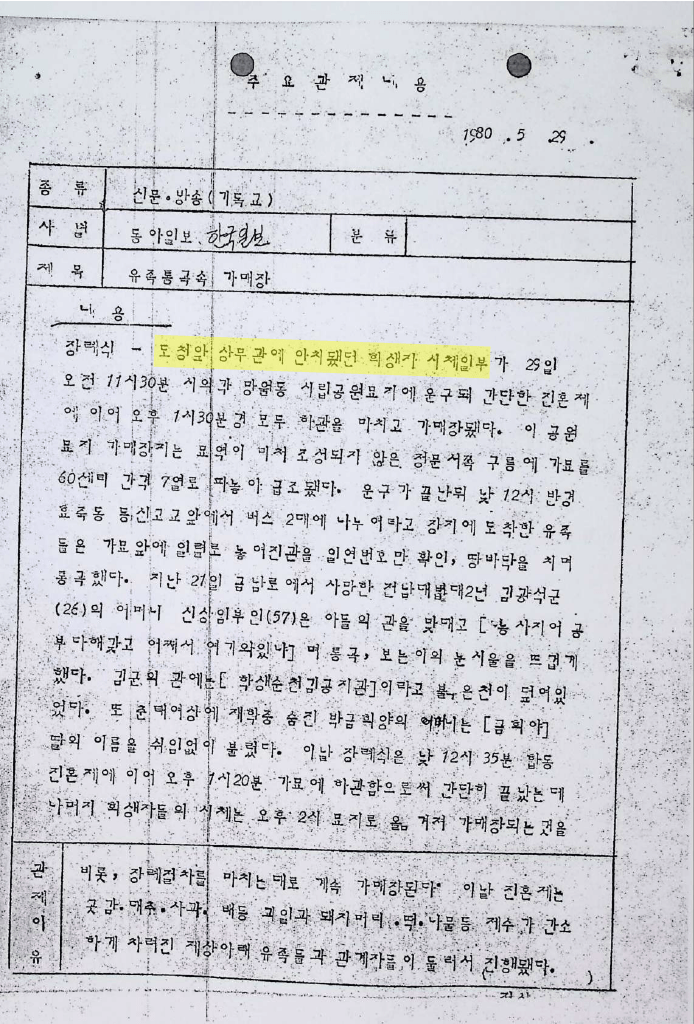 주요관제내용
1980. 5. 29.
종류 신문·방송(기독교)
사별 동아일보、한국일보 분류
제목 유족통곡속 가매장
내용
장례식 - 도청앞 상무관에 안치됐던 희생자 시체일부가 29일
오전 11시30분 시외곽 망월동 시립공원묘지에 운구돼 간단한 진혼제
에 이어 오후 1시30분경 모두 하관을 마치고 가매장됐다. 이 공원
묘지 가매장지는 묘역이 미처 조성되지 않은 정문서쪽 구릉에 가묘를
60센미 간격 7열로 파놓아 급조됐다. 운구가 끝난뒤 낮 12시 반경
효죽동 통신고교앞에서 버스 2대에 나누어타고 장지에 도착한 유족
들은 가묘앞에 일렬로 놓여진관을 일연번호만 확인, 땅바닥을 치며
통곡했다. 지난 21일 금남로에서 사망한 전남대법대2년 김광석군
(26)의 어머니 신상임부인(57)은 아들의 관을 맞대고 [농사지어 공
부다해갖고 어째서 여기와있냐] 며 통곡, 보는이의 눈시울을 뜨겁게
했다. 김군의 관에는[ 학생순천김공지관]이라고 붉은천이 덮여있
었다. 또 춘태여상에 재학중 숨진 박금희양의 어머니는 [금희야]
딸의 이름을 쉬임없이 불렀다. 이날 장례식은 낮 12시 35분 합동
진혼제에 이어 오후 1시20분 가묘에 하관함으로써 간단히 끝났는데
나머지 희생자들의 시체는 오후 2시 묘지로 옮겨져 가매장되는것을
관제이유 비롯, 장례절차를 마치는대로 계속 가매장된다. 이날 진혼제는
곳감·대추·사과·배등 과일과 돼지머리·떡·나물등 제수가 간소
하게 차려진 제상아래 유족들과 관계자들이 둘러서 진행됐다.
( )